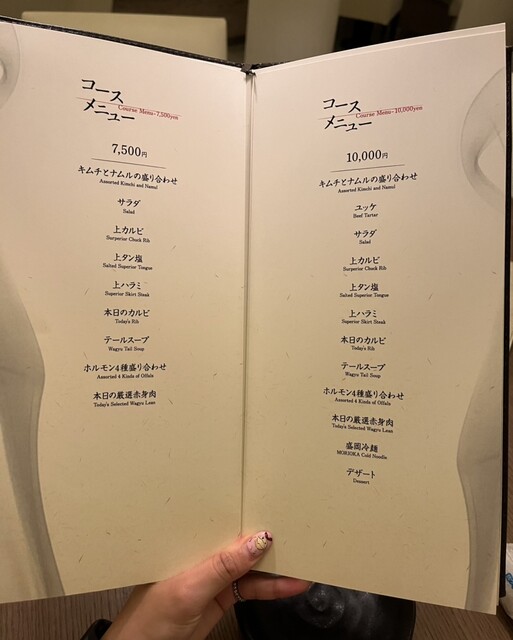 コース
メニュー
Course Menu-7,500yen
7,500円
キムチとナムルの盛り合わせ
Assorted Kimchi and Namul
サラダ
Salad
上カルビ
Surperior Chuck Rib
上タン塩
Salted Superior Tongue
上ハラミ
Superior Skirt Steak
本日のカルビ
Today's Rib
テールスープ
Wagyu Tail Soup
ホルモン4種盛り合わせ
Assorted 4 Kinds of Offals
本日の厳選赤身肉
Today's Selected Wagyu Lean
コース
メニュー
Course Menu-10,000yen
10,000円
キムチとナムルの盛り合わせ
Assorted Kimchi and Namul
ユッケ
Beef Tartar
サラダ
Salad
上カルビ
Surperior Chuck Rib
上タン塩
Salted Superior Tongue
上ハラミ
Superior Skirt Steak
本日のカルビ
Today's Rib
テールスープ
Wagyu Tail Soup
ホルモン4種盛り合わせ
Assorted 4 Kinds of Offals
本日の厳選赤身肉
Today's Selected Wagyu Lean
盛岡冷麺
MORIOKA Cold Noodle
デザート
Dessert